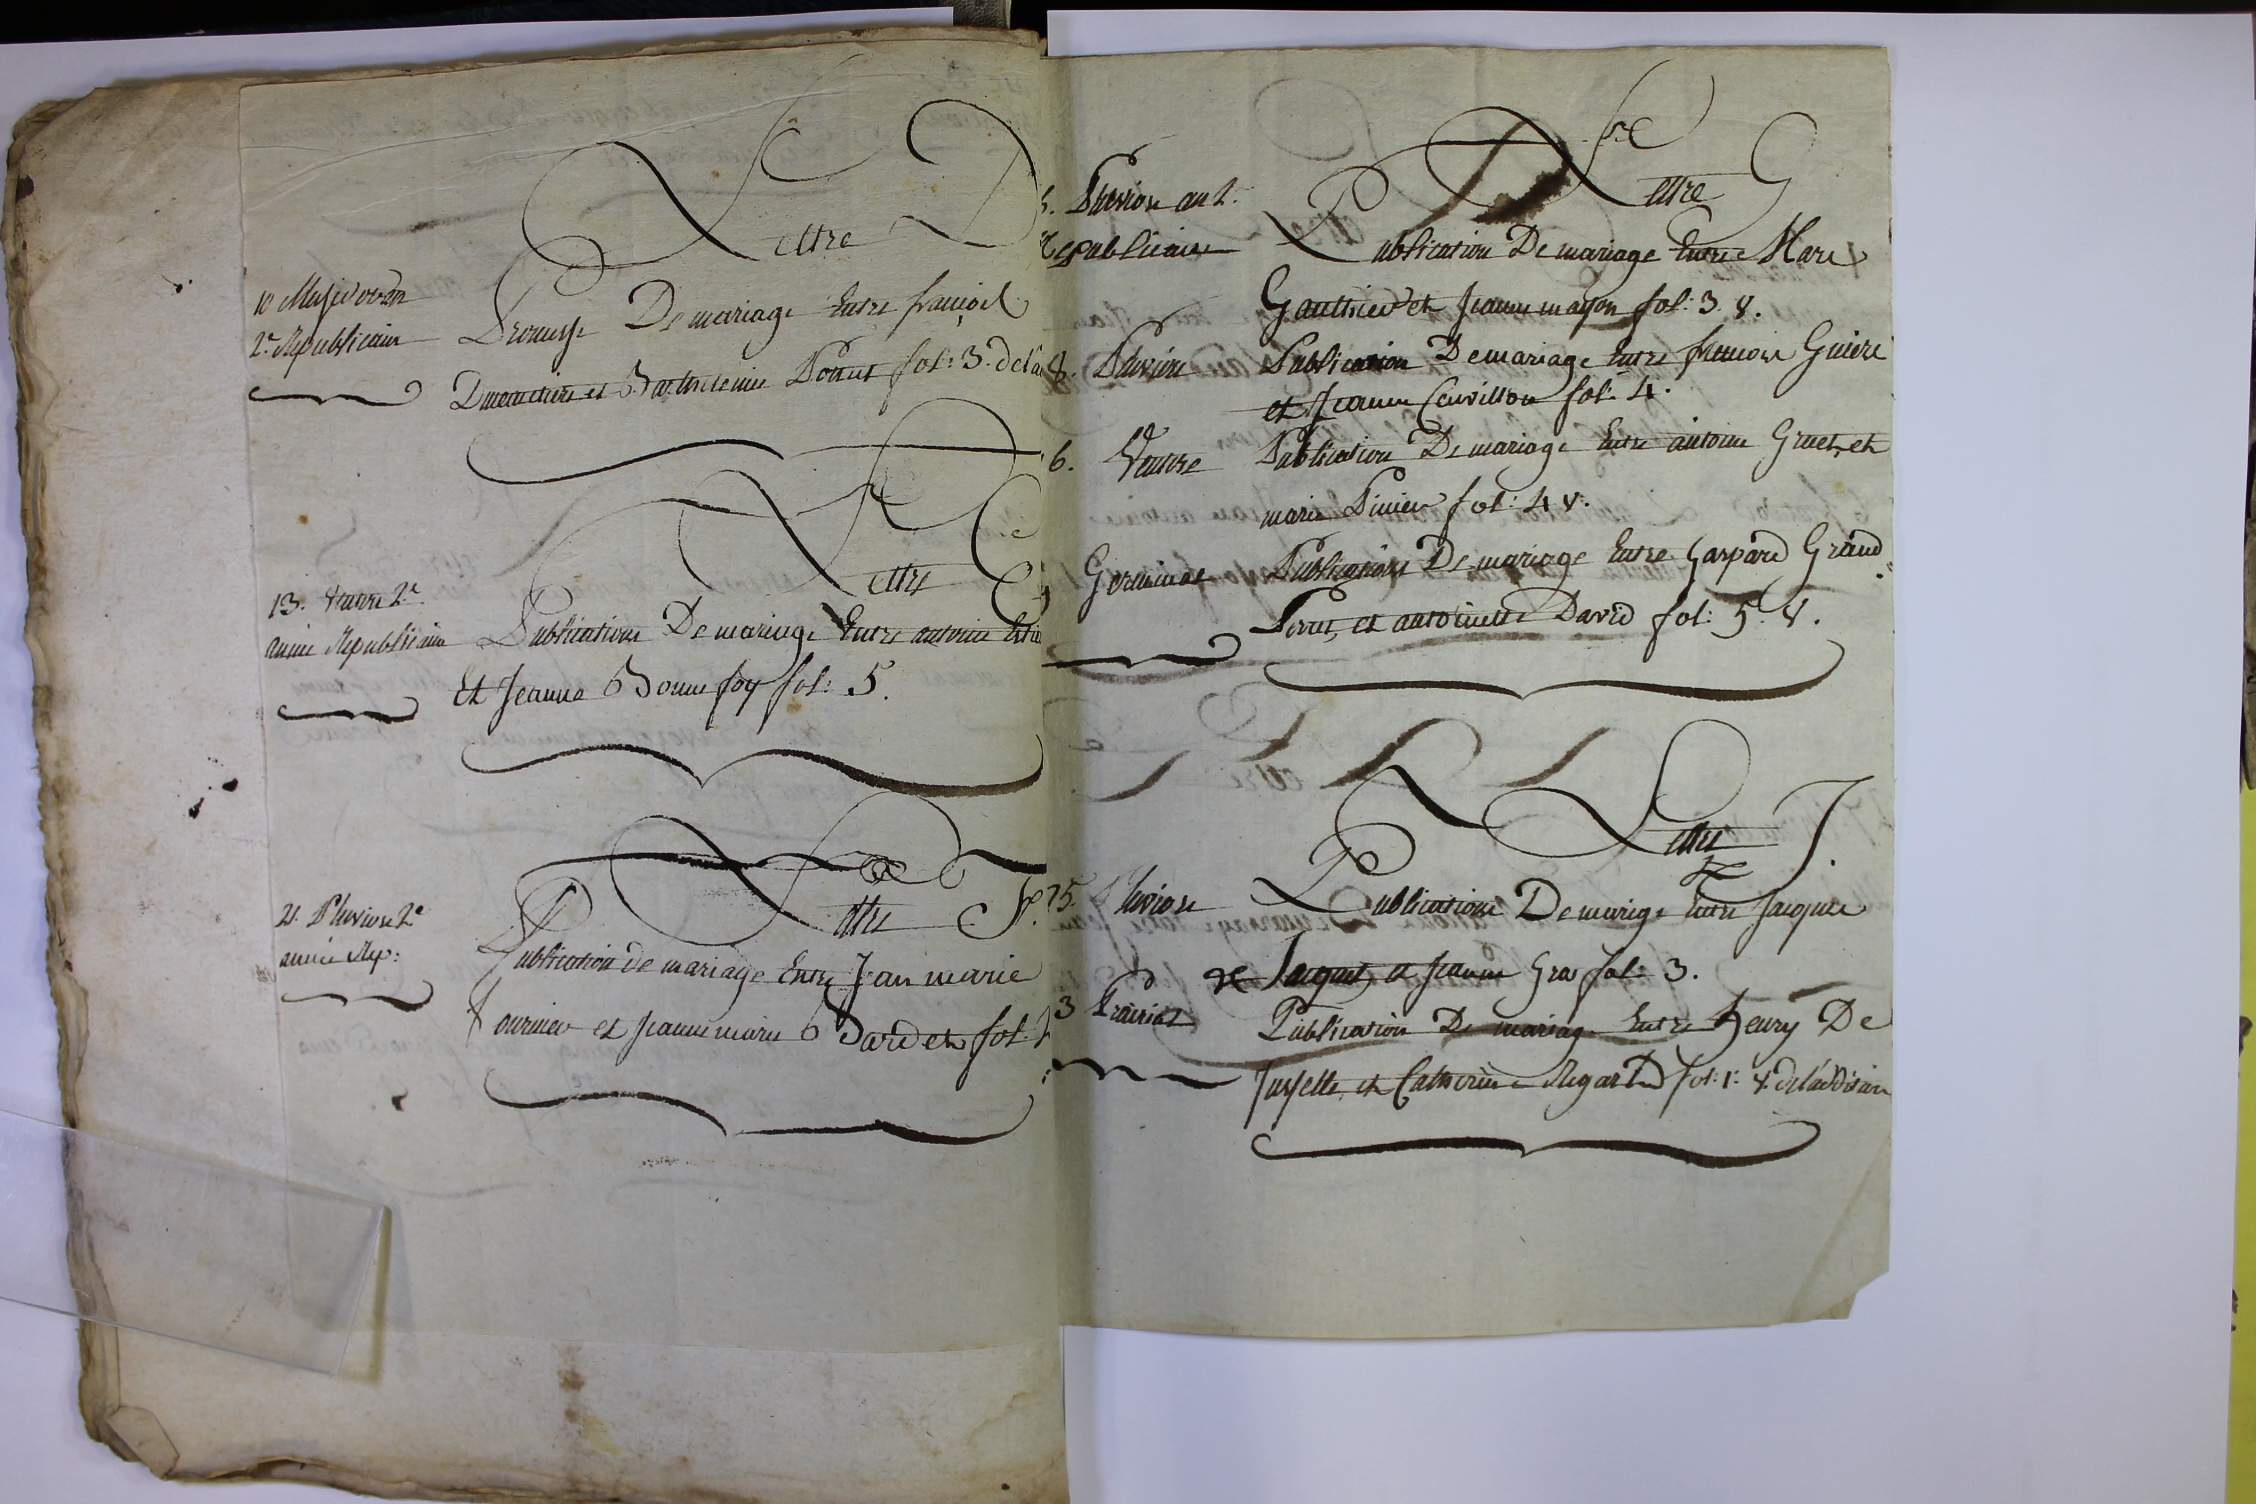 Lettre D
10 Messidor an
2e Republicain
Promesse De mariage Entre françois
Dumentier et Barthelemie Ponut fol: 3. de la
Lettre E
13. Ventose 2e
année Republicaine
Publication De mariage Entre antoine
Et Jeanne Bonnefoy fol: 5.
Lettre F.
21. Pluviose 2e
année Rep:
Publication de mariage Entre Jean marie
fournier et Jeanne marie Bardet fol:
Lettre G
Pluviose an 2.
Republicain
Publication De mariage Entre Marc
Gauthier et Jeanne mayon fol: 3. v.
8. Pluviose
Publication De mariage Entre francois
et Jeanne Cenvillon fol: 4.
6. Ventose
Publication De mariage Entre antoine Gruet, et
marie Pinier fol: 4 v.
Germinal
Publication De mariage Entre Gaspard Grand
Perret, et antoinette David fol: 5. v.
Lettre J.
25. Pluviose
Publication De mariage Entre Jacques
Jacquet, et Jeanne Gras fol: 3.
3 Prairial
Publication De mariage Entre henry De
Jussette, et Catherine Regard fol: 1: v. de l'addition